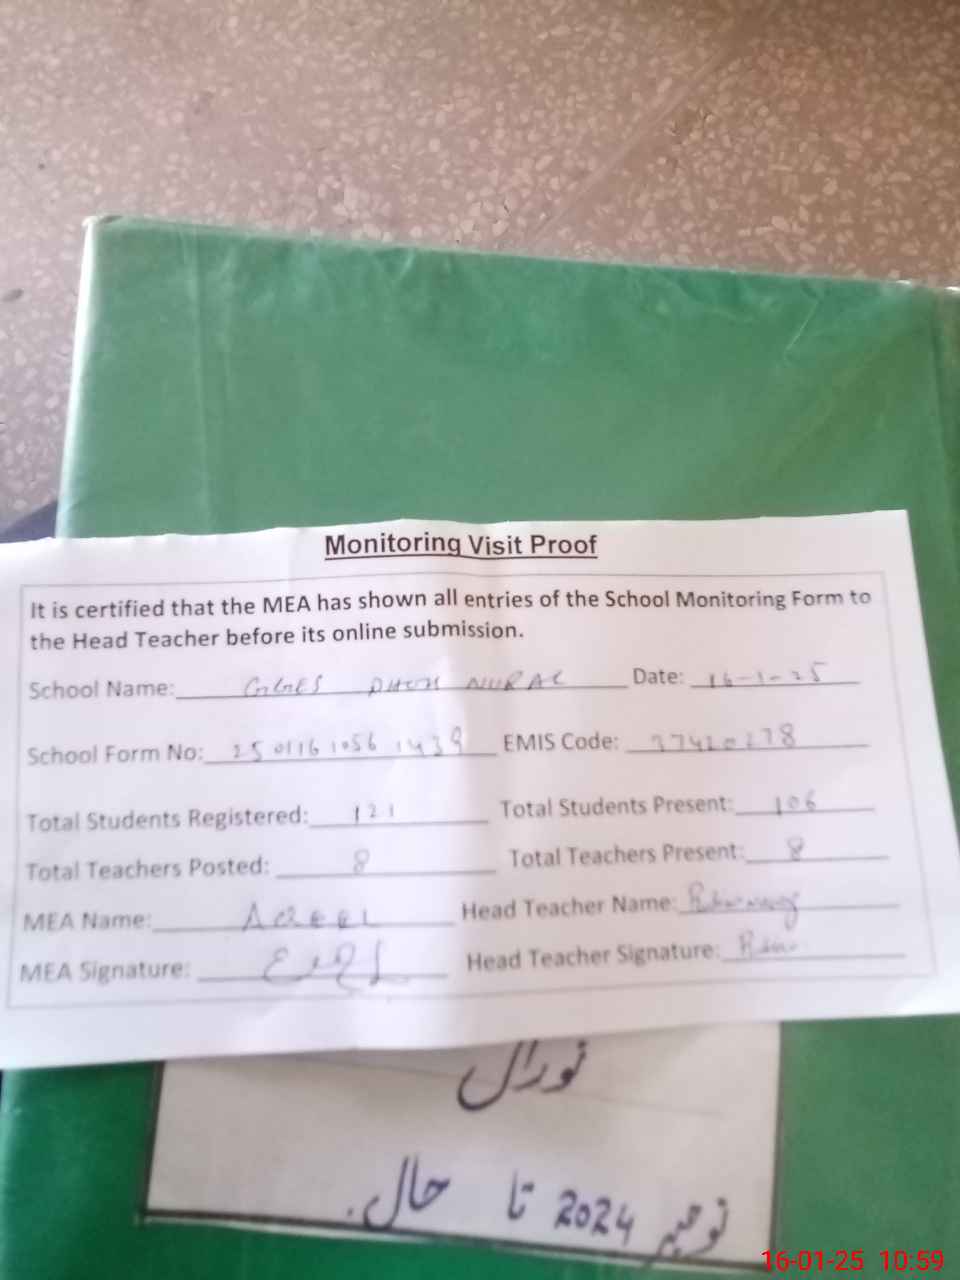 Monitoring Visit Proof
It is certified that the MEA has shown all entries of the School Monitoring Form to
the Head Teacher before its online submission.
School Name: GGES DHOK NURAL Date: 16-1-25
School Form No: 250116 1056 1439 EMIS Code: 37420278
Total Students Registered: 121 Total Students Present: 106
Total Teachers Posted: 8 Total Teachers Present: 8
MEA Name: Head Teacher Name:
MEA Signature: Head Teacher Signature:
نورال
نومبر 2024 تا حال.
16-01-25 10:59